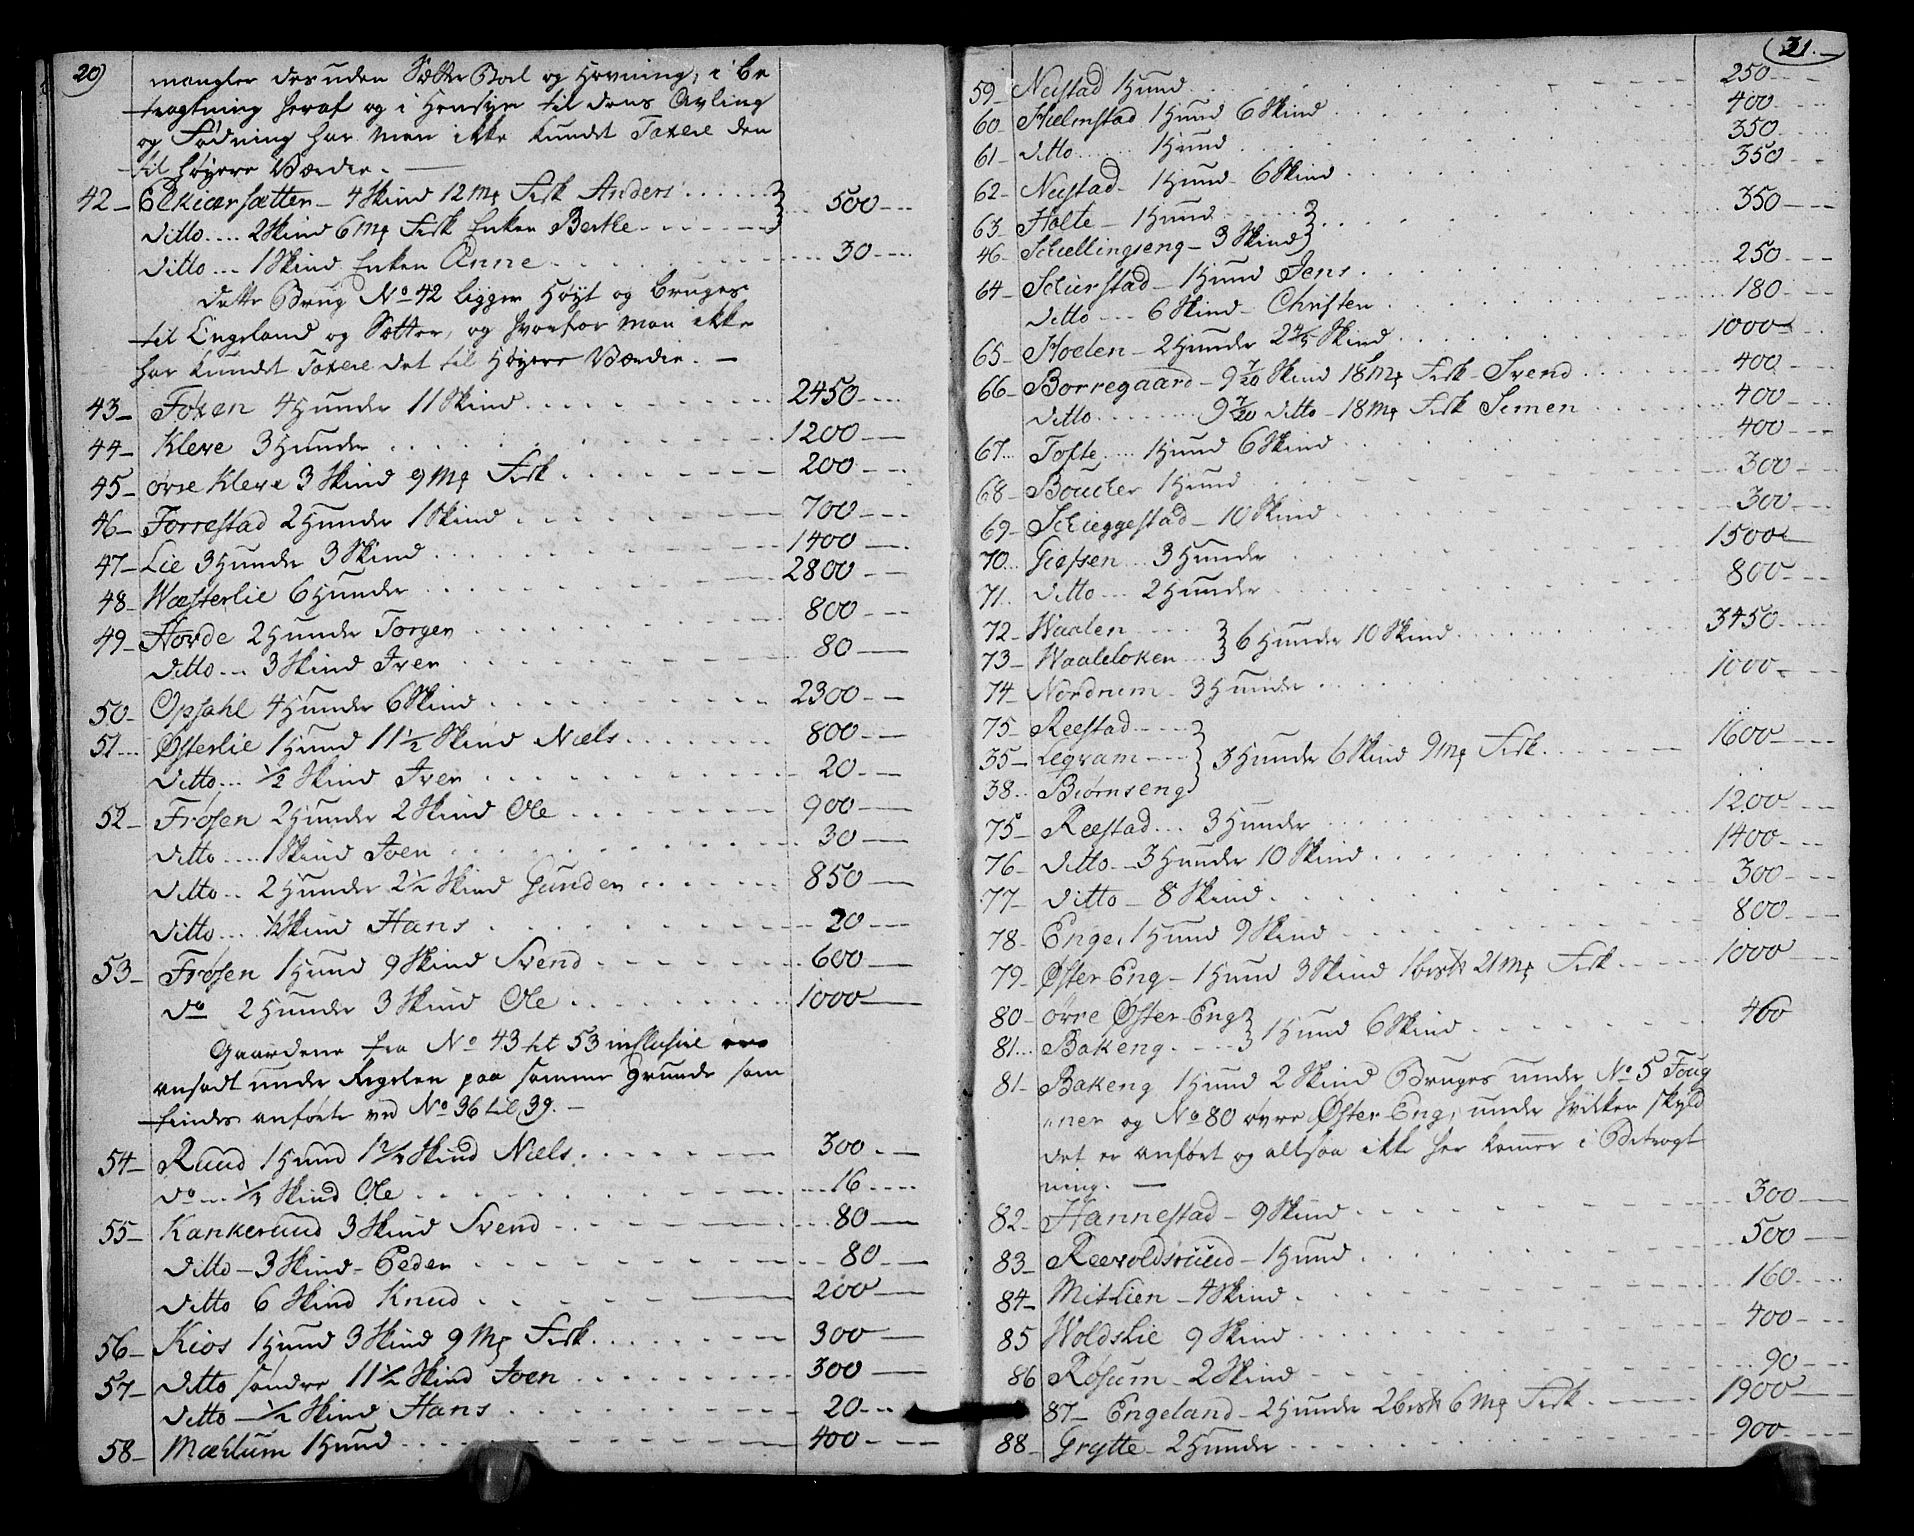 20)
mangler desuden Sætter Boel og Havning, i be
tragtning heraf og i Hensyn til dens Avling
og Fødning har man ikke kundet Taxere den
til høyere Værdie.
42 Elkiærsætter - 4 Skind 12 Mg Fisk Anders
ditto 2 Skind 6 Mg Fisk Enken Berthe } 500
ditto 1 Skind Enken Anne 30
dette Brug No 42 ligger Høyt og bruges
til Engeland og Sætter, og hvorfor man ikke
har kundet Taxere det til Høyere Værdie.
43 Foxen 4 Hunder 11 Skind 2450
44 Kleve 3 Hunder 1200
45 øvre Kleve 3 Skind 9 Mg Fisk 200
46 Forrestad 2 Hunder 1 Skind 700
47 Lie 3 Hunder 3 Skind 1400
48 Wæsterlie 6 Hunder 2800
49 Hovde 2 Hunder Torger 800
ditto 3 Skind Iver 80
50 Opsahl 4 Hunder 6 Skind 2300
51 Østerlie 1 Hund 11 1/2 Skind Niels 800
ditto 1/2 Skind Iver 20
52 Frøsen 2 Hunder 2 Skind Ole 900
ditto 1 Skind Joen 30
ditto 2 Hunder 2 1/2 Skind Gunder 850
ditto 1/2 Skind Hans 20
53 Frøsen 1 Hund 9 Skind Svend 600
do 2 Hunder 3 Skind Ole 1000
Gaardene fra No 43 til 53 inclusive
ansadt under Regelen paa samme grunde som
findes anførte ved No 36 til 39.
54 Ruud 1 Hund 1 Skind Niels 300
do Skind Ole 16
55 Kankerud 3 Skind Svend 80
ditto - 3 Skind - Peder 80
ditto 6 Skind Knud 200
56 Kios 1 Hund 3 Skind 9 Mg Fisk 300
57 ditto søndre 11 1/2 Skind Joen 300
ditto - 1/2 Skind Hans 20
58 Mæhlum 1 Hund 400
21.
59 Neustad 1 Hund 250
60 Hielmstad 1 Hund 6 Skind 400
61 ditto 1 Hund 350
62 Neustad 1 Hund 6 Skind 350
63 Holte - 1 Hund
46 Schellingseng - 3 Skind } 350
64 Schierstad - 1 Hund Jens 250
ditto 6 Skind - Christen 180
65 Hoelen - 2 Hunder 2 4/5 Skind 1000
66 Borregaard - 9 7/20 Skind 18 Mg Fisk - Svend 400
ditto 9 7/20 ditto - 18 Mg Fisk Simen 400
67 Tofte 1 Hund 6 Skind 400
68 Boucher 1 Hund 300
69 Schieggestad - 10 Skind 300
70 Giefsen 3 Hunder 1500
71 ditto 2 Hunder 800
72 Waalen
73 Waaleloken } 6 Hunder 10 Skind 3450
74 Nordrum - 3 Hunder 1000
75 Reestad
35 Legram } 3 Hunder 6 Skind 9 Mg Fisk 1600
38 Biørnseng
75 Reestad 3 Hunder 1200
76 ditto - 3 Hunder 10 Skind 1400
77 ditto - 8 Skind 300
78 Enge, 1 Hund 9 Skind 800
79 Øster Eng - 1 Hund 3 Skind 1 21 Mg Fisk 1000
80 øvre Øster Eng
81 Bakeng } 1 Hund 6 Skind 460
81 Bakeng 1 Hund 2 Skind Bruges under No 5 Foug
"ner og No 80 øvre Øster-Eng, under hvilken skyld
det er anført og altsaa ikke her komer i Betragt
ning. -
82 Hannestad - 9 Skind 300
83 Reevoldsruud - 1 Hund 500
84 Mitlien - 4 Skind 160
85 Woldslie 9 Skind 400
86 Røsum - 2 Skind 90
87 Engeland - 2 Hunder 2 6 Mg Fisk 1900
88 Grytte - 2 Hunder 900